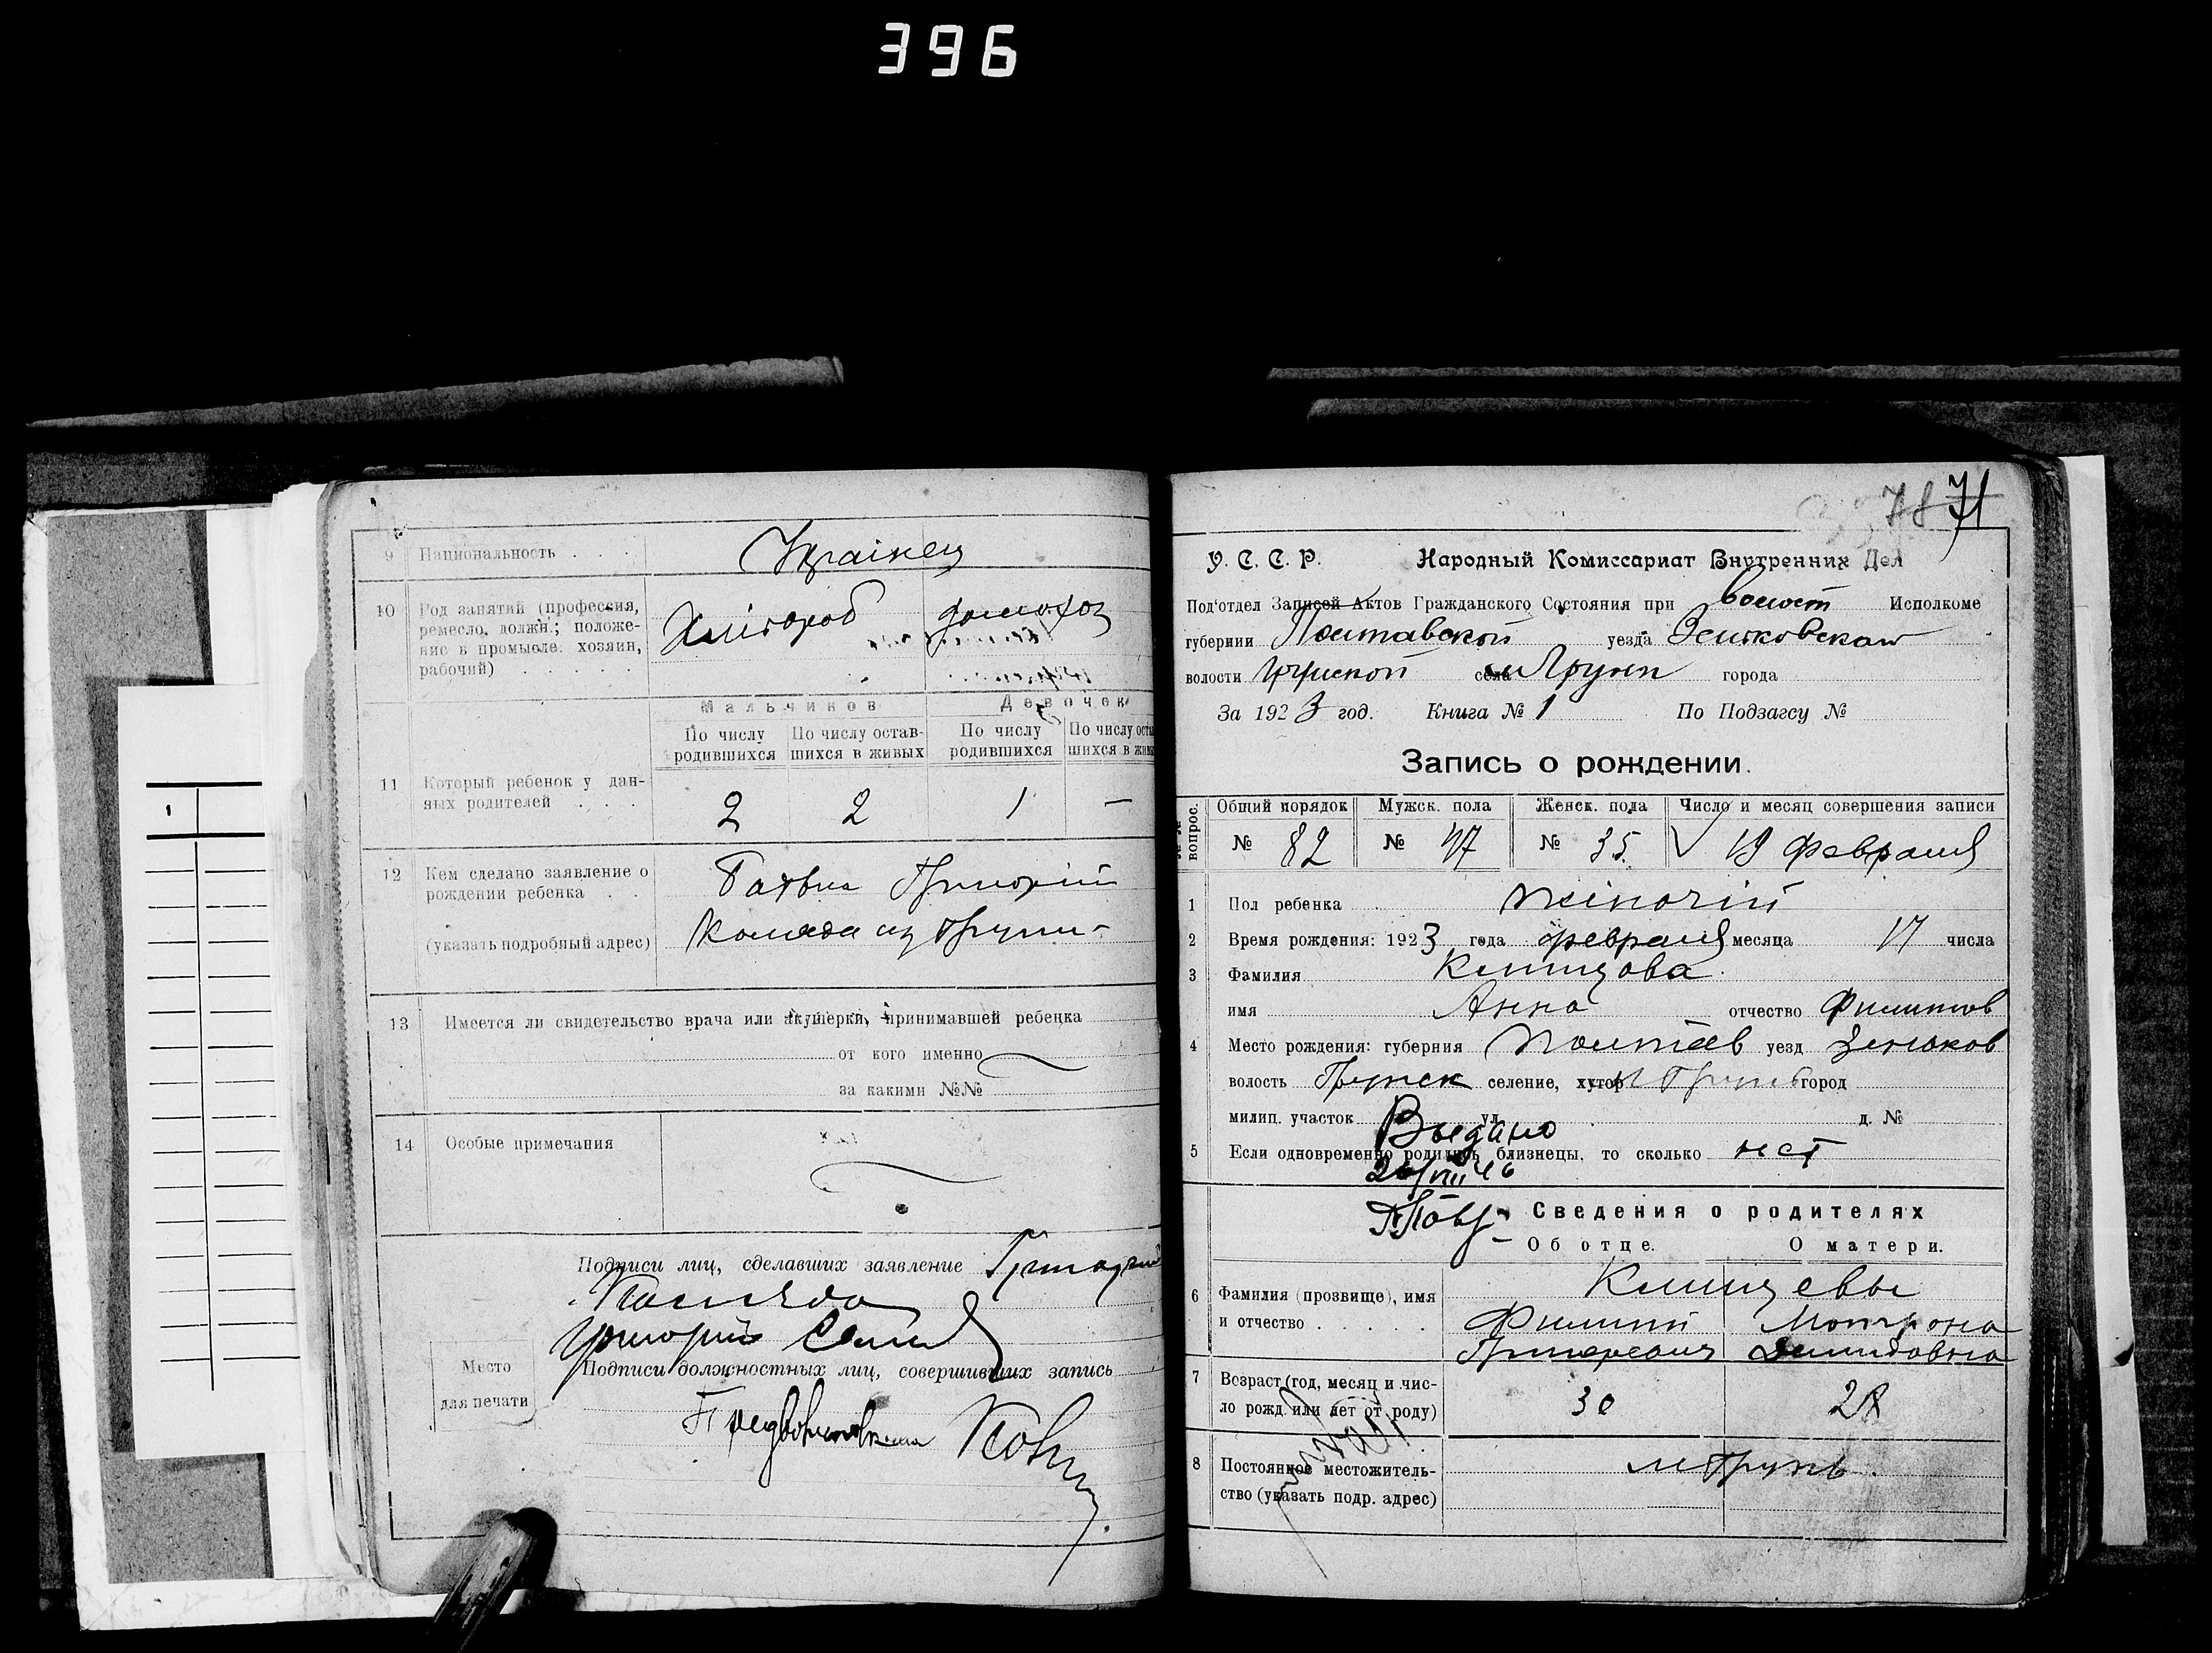 396
9 Национальность . . . Українец
10 Род занятий (профессия, ремесло, должн.; положение в промысле: хозяин, рабочий) . . . . Хлібороб домохоз
Мальчиков Девочек
По числу родившихся По числу оставшихся в живых По числу родившихся По числу оста шихся в жив
11 Который ребенок у данных родителей . . . 2 2 1 —
12 Кем сделано заявление о рождении ребенка . . Григорій
(указать подробный адрес) Коляда из Груни
13 Имеется ли свидетельство врача или акушерки, принимавшей ребенка
от кого именно
за какими №№
14 Особые примечания
Подписи лиц, сделавших заявление Григорий
Коляда
Григорий
Место для печати
Подписи должностных лиц, совершивших запись
78 71
У. С. С. Р. Народный Комиссариат Внутренних Дел
Под'отдел Записей Актов Гражданского Состояния при Волост Исполкоме
губернии Полтавской уезда Зеньковскаго
волости Грунской села м Грунь города
За 1923 год. Книга № 1 По Подзагсу №
Запись о рождении.
№№ вопрос. Общий порядок Мужск. пола Женск. пола Число и месяц совершения записи
№ 82 № 47 № 35 19 февраля
1 Пол ребенка жіночій
2 Время рождения: 1923 года февраля месяца 17 числа
3 Фамилия Климцова
имя Анна отчество Филипов
4 Место рождения: губерния Полтав уезд Зеньков
волость Грунск селение, хутор м Грунь город
милиц. участок ул. д. №
Выдано
5 Если одновременно родились близнецы, то сколько нет
26/VIII 46
Сведения о родителях
Об отце. О матери.
6 Фамилия (прозвище), имя и отчество . . . . . Климцевы
Филипп Мотрона
Григорьевич Демидовна
7 Возраст (год, месяц и число рожд. или лет от роду) 30 28
8 Постоянное местожительство (указать подр. адрес) м Грунь.